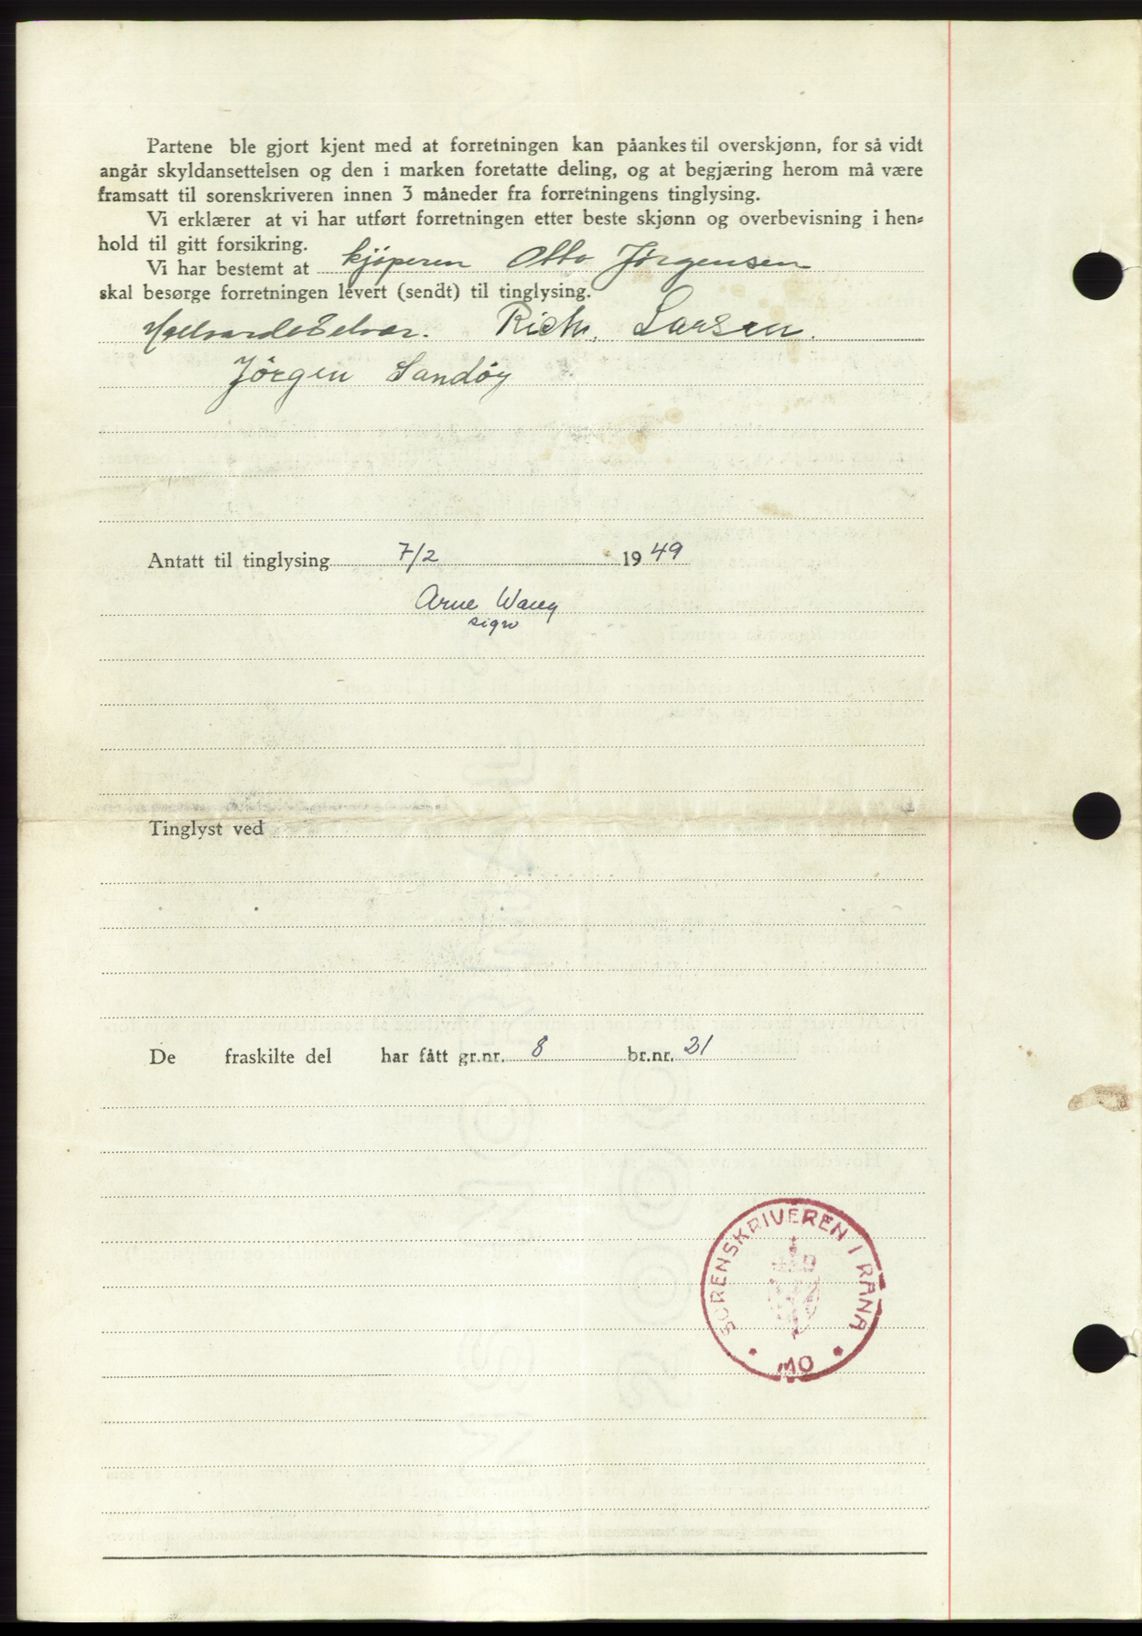 Partene ble gjort kjent med at forretningen kan påankes til overskjønn, for så vidt
angår skyldansettelsen og den i marken foretatte deling, og at begjæring herom må være
framsatt til sorenskriveren innen 3 måneder fra forretningens tinglysing.
Vi erklærer at vi har utført forretningen etter beste skjønn og overbevisning i hen=
hold til gitt forsikring.
Vi har bestemt at kjøperen Otto Jørgensen
skal besørge forretningen levert (sendt) til tinglysing.
Rich. Larsen.
Jørgen Sandøy
Antatt til tinglysing 7/2 1949
Arne Wang
sign
Tinglyst ved
De fraskilte del har fått gr.nr. 8 br.nr. 21
SORENSKRIVEREN I RANA
MO